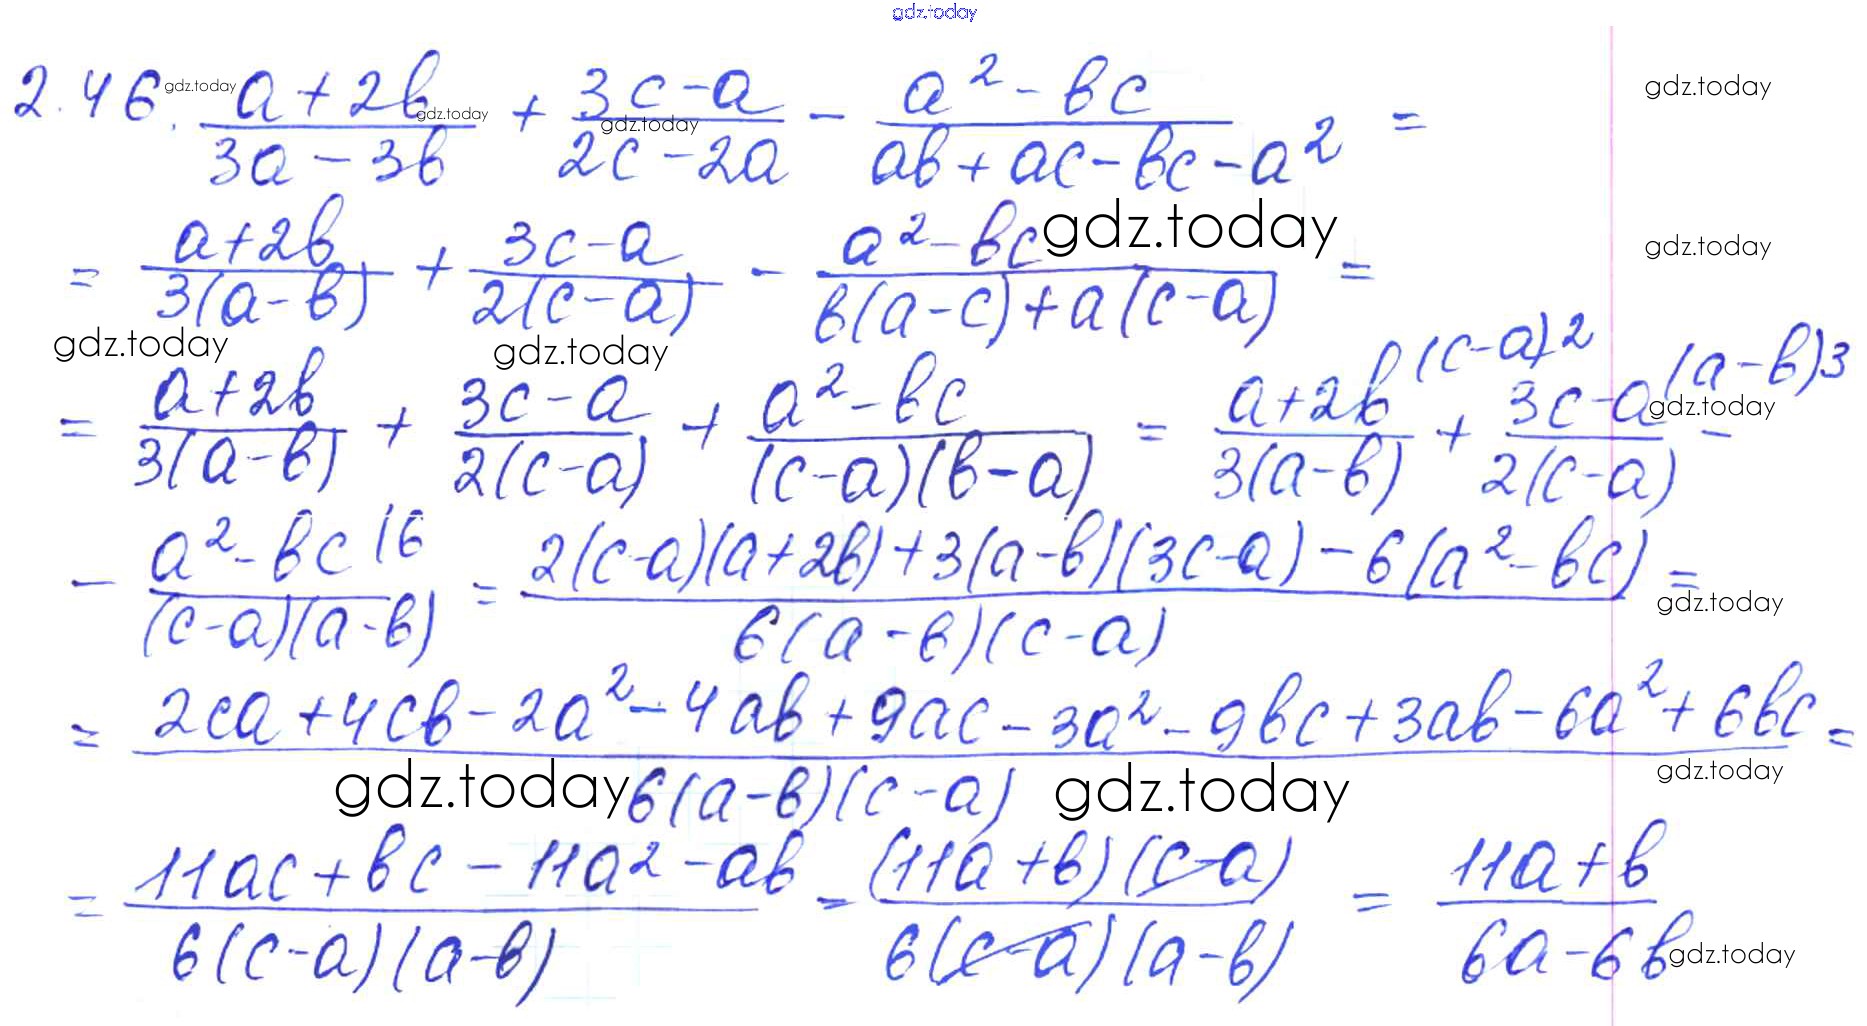 gdz.today
2.46. gdz.today (a+2b)/(3a-3b) gdz.today + (3c-a)/(2c-2a) gdz.today - (a²-bc)/(ab+ac-bc-a²) = gdz.today
= (a+2b)/(3(a-b)) + (3c-a)/(2(c-a)) - (a²-bc)/(b(a-c)+a(c-a)) = gdz.today gdz.today
gdz.today gdz.today
= (a+2b)/(3(a-b)) + (3c-a)/(2(c-a)) + (a²-bc)/((c-a)(b-a)) = (a+2b)/(3(a-b)) (c-a)2 + (3c-a)/(2(c-a)) (a-b)3 - gdz.today
- (a²-bc)/((c-a)(a-b)) (6 = (2(c-a)(a+2b)+3(a-b)(3c-a)-6(a²-bc))/(6(a-b)(c-a)) = gdz.today
= (2ca+4cb-2a²-4ab+9ac-3a²-9bc+3ab-6a²+6bc)/(6(a-b)(c-a)) = gdz.today gdz.today gdz.today
= (11ac+bc-11a²-ab)/(6(c-a)(a-b)) = ((11a+b)(c-a))/(6(c-a)(a-b)) = (11a+b)/(6a-6b) gdz.today